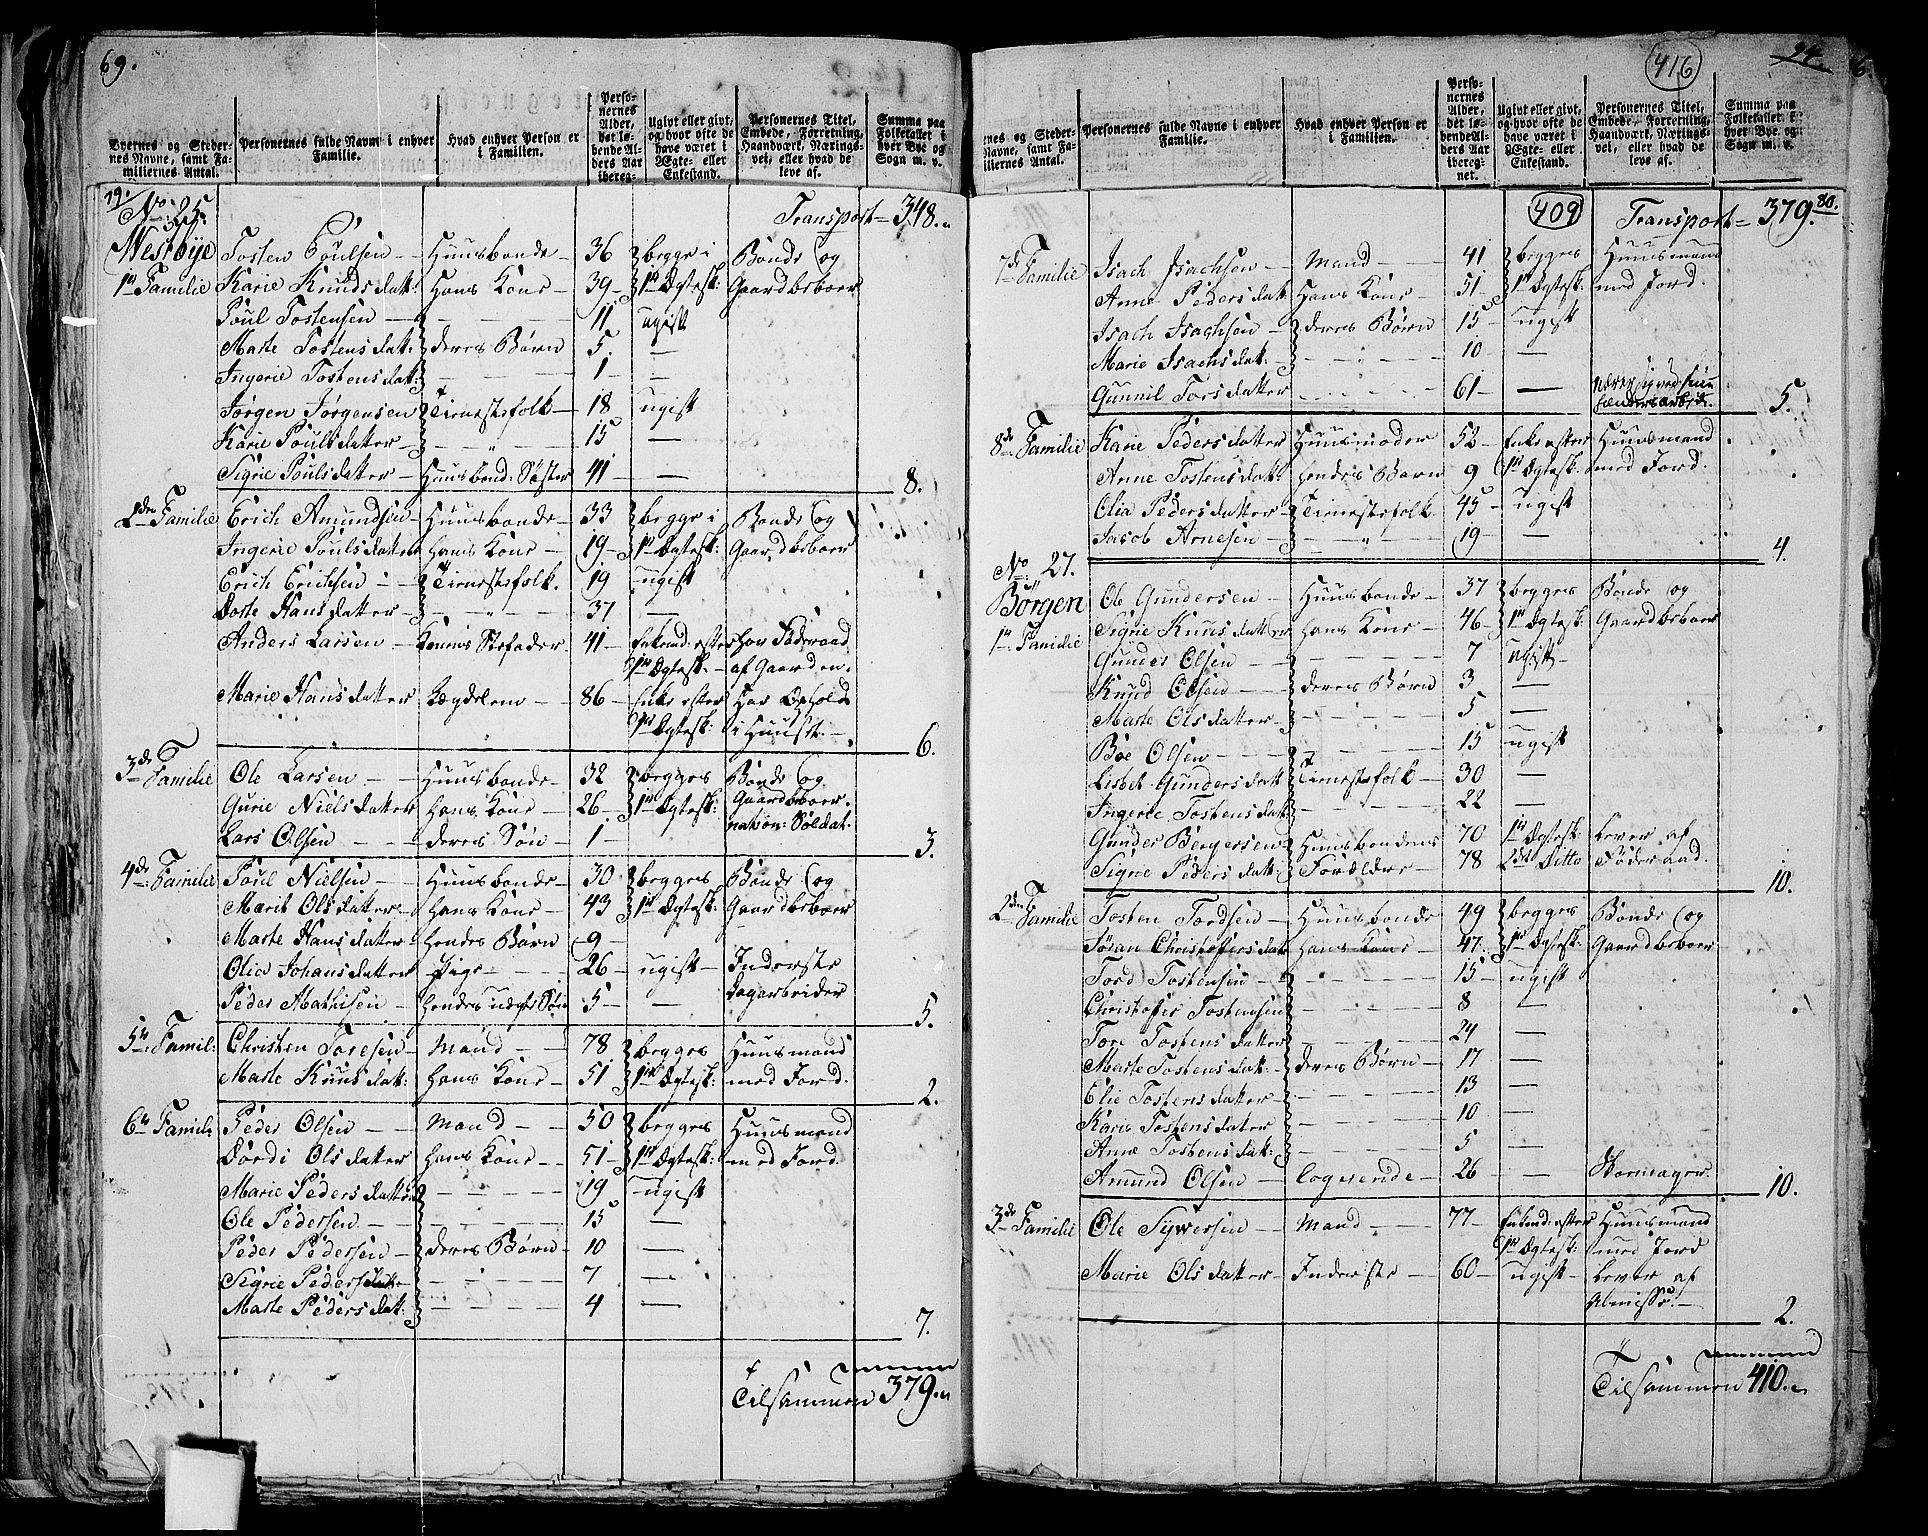 69.
Byernes og Steder-
nes Navne, samt Fa-
miliernes Antal.
Personernes fulde Navne i enhver
Familie.
Hvad enhver Person er
i Familien.
Perso-
nernes
Alder,
det lø-
bende Al-
ders Aar
iberegnet
Ugivt eller givt,
og hvor ofte de
have været i
Ægte- eller
Enkestand.
Personernes Titel,
Embede, Forretning,
Haandværk, Nærings-
vei, eller hvad de
leve af.
Summa paa
Folketallet i
hver Bye og
Sogn m. v.
79.
No: 25. Transport = 348.
Westbye Tosten Poulsen — Huusbonde — 36 begge i Bonde og
1te Familie Karie Knudsdatt: Hans Kone — 39 — 1te Ægtesk: Gaardbeboer
Poul Tostensen — 11 ugift
Marte Tostensdatt: deres Børn 5. —
Ingerie Tostensdatt: — 1 —
Jørgen Jørgensen Tienestefolk — 18 ugift
Karie Poulsdatter — 15 —
Sigrie Poulsdatter — Huusbond: Søster 41 — — 8.
2den Familie Erich Amundsen — Huusbonde — 33 begge i Bonde og
Ingerie Poulsdatter hans Kone — 19 — 1te Ægtesk: Gaardbeboer
Erich Erichsen — Tienestefolk. 19 ugift
Dorte Hansdatter — 37 —
Anders Larsen — Konens Stefader 41 — Enkemd: efter har Føderaad
1te Ægtesk: — af Gaarden.
Marie Hansdatter Lægdelem — 86 — Enke efter Har Ophold
1te Ægtesk: i Huuset. — 6.
3de Familie Ole Larsen — Huusbonde — 32 begges Bonde og
Gurie Nielsdatter hans Kone — 26 — 1te Ægtesk: Gaardbeboer.
nation: Soldat.
Lars Olsen — deres Søn — 1 — 3.
4de Familie Poul Nielsen — Huusbonde — 30 begges Bonde og
Marit Olsdatter — hans Kone — 43 1te Ægtesk: Gaardbeboer
Marte Hansdatter hendes Børn 9 —
Olia Johansdatter Pige — 26 — ugift — Inderste
Peder Mathisen — hendes uægte Søn 5 — — Dagarbeider 5.
5te Famil: Christen Toresen — Mand — 78 begges Huusmand
Marte Knudsdatt: hans Kone — 51 1te Ægtesk: med Jord. 2.
6te Famil: Peder Olsen — Mand — 50 begges Huusmand
Dordi Olsdatter hans Kone — 51 1te Ægtesk: med Jord.
Marie Pedersdatter — 19 — ugift
Ole Pedersen — 15 —
Peder Pedersen — deres Børn — 10 —
Sigrie Pedersdatter — 7 —
Marte Pedersdatt: — 4 — 7.
Tilsammen 379.
416
94.
nes og Steder-
Navne, samt Fa-
miliernes Antal.
Personernes fulde Navne i enhver
Familie.
Hvad enhver Person er
i Familien.
Perso-
nernes
Alder,
det lø-
bende Al-
ders Aar
iberegnet.
Ugivt eller givt,
og hvor ofte de
have været i
Ægte- eller
Enkestand.
Personernes Titel,
Embede, Forretning,
Haandværk, Nærings-
vei, eller hvad de
leve af.
Summa paa
Folketallet i
hver Bye og
Sogn m. v.
409 Transport = 379. 80.
7de Familie Isach Isachsen — Mand — 41 begges Huusmand
Anne Pedersdatt: Hans Kone — 51 — 1te Ægtesk: med Jord.
Isach Isachsen — deres Børn 15 — ugift
Marie Isachsdatt: — 10 —
Gunnil Torsdatter — 61 — — nærer sig ved sine
Hænders arbeide. 5.
8de Familie Karie Pedersdatter Huusmoder 52 — Enke efter Huusmand
Anne Tostensdatt: hendes Børn 9 1te Ægtesk: med Jord.
Olia Pedersdatter — Tienestefolk 45 — ugift
Jacob Arnesen — 19 — — 4.
No: 27.
Børgen Ole Gundersen — Huusbonde — 37 begges Bonde og
1te Familie Sigrie Knudsdatter hans Kone — 46 — 1te Ægtesk: Gaardbeboer
Gunder Olsen — 7 ugift —
Knud Olsen — deres Børn 3 —
Marte Olsdatter — 5 —
Boe Olsen — 15 ugift
Lisbet Gundersdatt Tienestefolk — 30 —
Ingerie Tostensdatt — 22 —
Gunder Bergersen — Huusbondens 70 1te Ægtesk: Lever af
Signe Pedersdatt: Forældre — 78 2den Ditto Føderaad. 10.
2den Familie Tosten Tordsen — Huusbonde 49 begges Bonde og
Jøran Christophersdatt hans Kone — 47. 1te Ægtesk: Gaardbeboer
Tord Tostensen — 15 — ugift
Christoffer Tostensen — 8 —
Tore Tostensdatter 24 —
Marte Tostensdatt: — deres Børn — 17 —
Elie Tostensdatter — 13 —
Karie Tostensdatter — 10 —
Anne Tostensdatt: — 5 —
Amund Olsen — Logerende — 26 — Skomager. 10.
3de Familie Ole Syversen — Mand — 77 — Enkemd: efter Huusmand
1te Ægtesk: med Jord
Marie Olsdatter — Inderste — 60 — ugift — Lever af
Almisse. — 2.
Tilsammen 410.